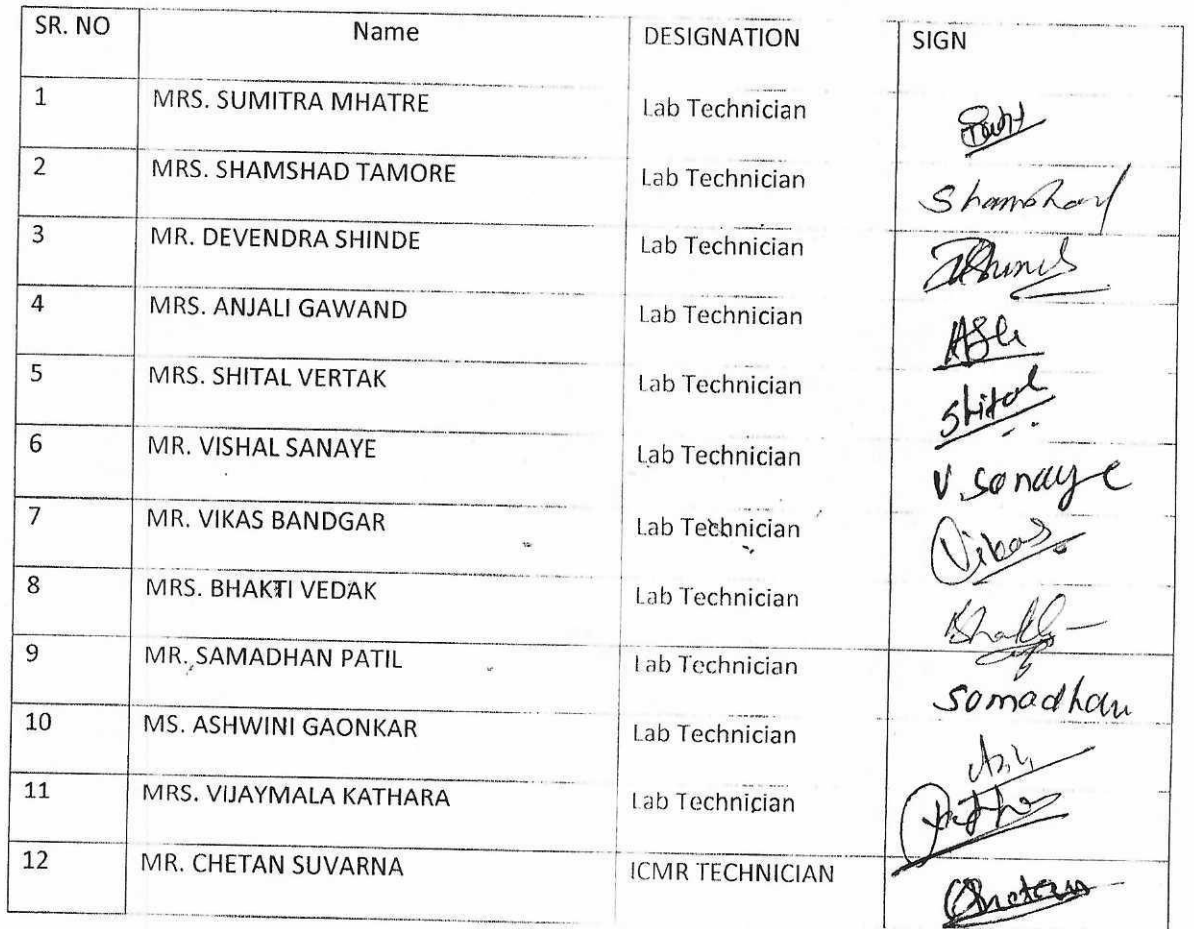 SR. NO Name DESIGNATION SIGN
1 MRS. SUMITRA MHATRE Lab Technician
2 MRS. SHAMSHAD TAMORE Lab Technician Shamshad
3 MR. DEVENDRA SHINDE Lab Technician
4 MRS. ANJALI GAWAND Lab Technician
5 MRS. SHITAL VERTAK Lab Technician Shital
6 MR. VISHAL SANAYE Lab Technician V. Sanaye
7 MR. VIKAS BANDGAR Lab Technician Vikas
8 MRS. BHAKTI VEDAK Lab Technician Bhakti
9 MR. SAMADHAN PATIL Lab Technician Samadhan
10 MS. ASHWINI GAONKAR Lab Technician
11 MRS. VIJAYMALA KATHARA Lab Technician
12 MR. CHETAN SUVARNA ICMR TECHNICIAN Chetan